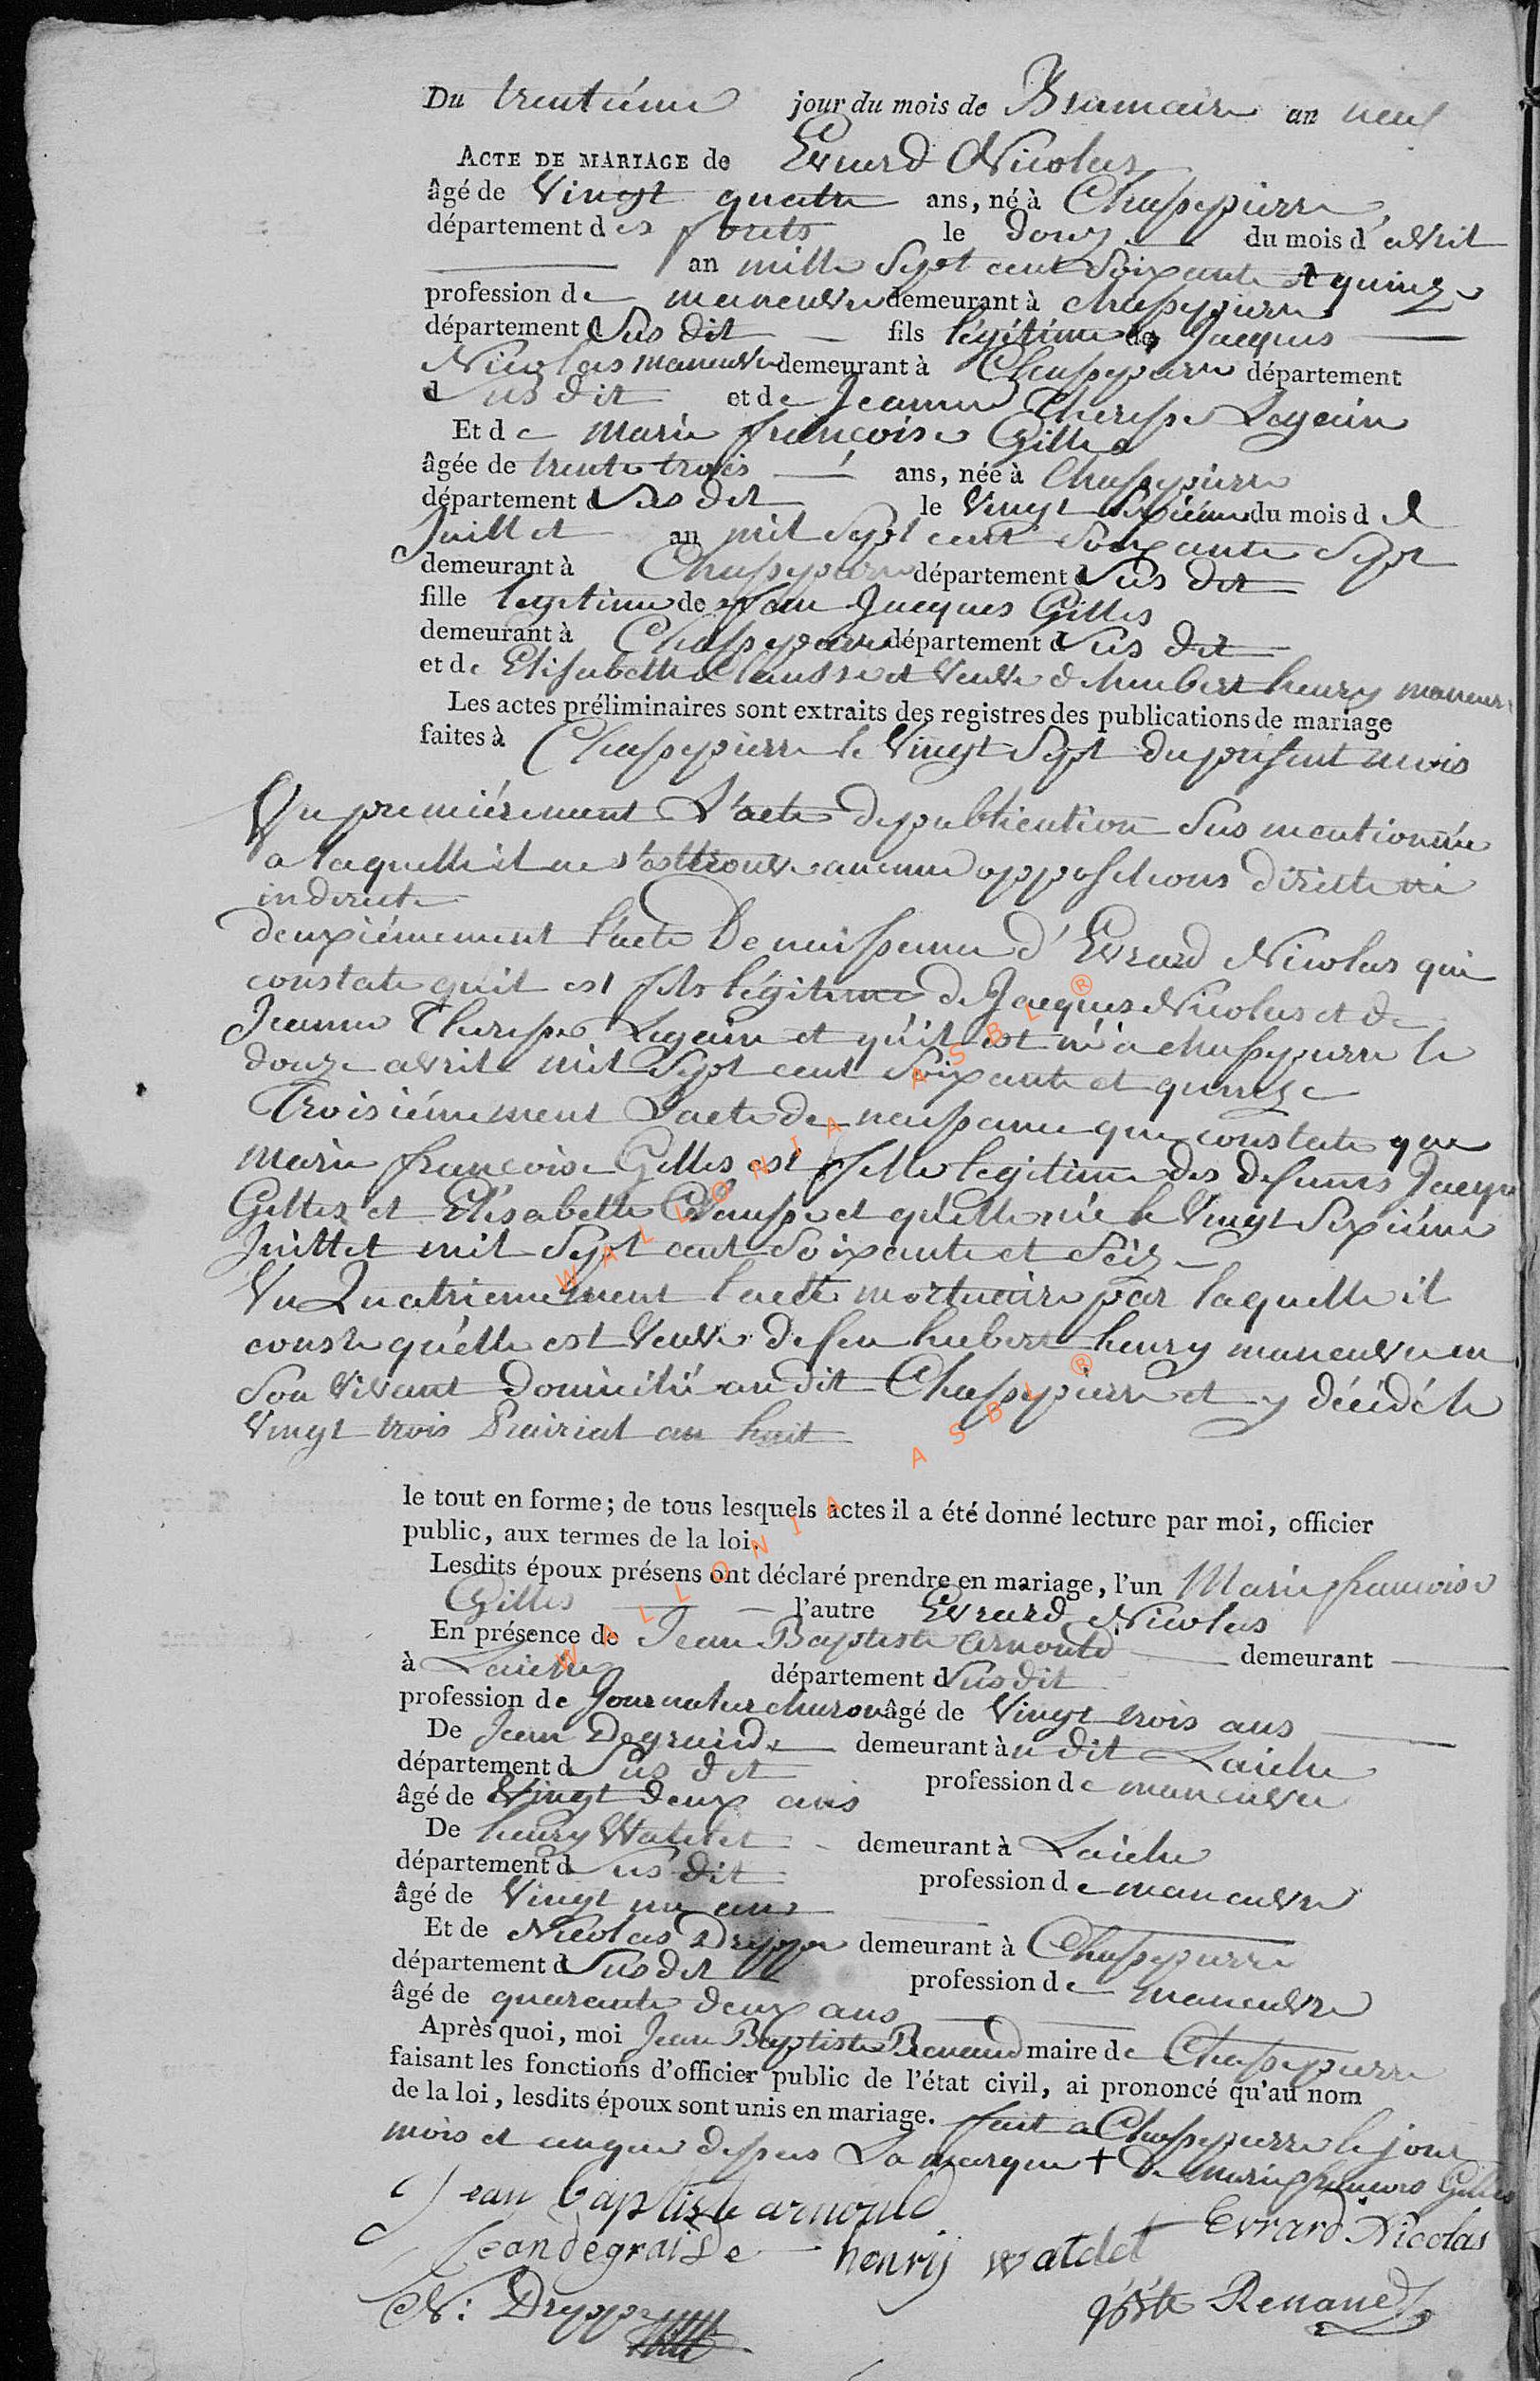 Du trentieme jour du mois de Brumaire an neuf
ACTE DE MARIAGE de Evrard Nicolas
âgé de Vingt quatre ans, né à Chassepierre
département des forets le douze du mois d'avril
an mille Sept cent Soixante et quinze
profession de maneuvre demeurant à chassepierre
département Sus dit fils légitime de Jacques
Nicolas maneuvre demeurant à Chassepierre département
d Sus dit et de Jeanne Theresse
Et de Marie françoise Gilles
âgée de trente trois ans, née à Chassepierre
département d Sus dit le Vingt Sixieme du mois d
Juillet an mil Sept cent Soixante Sept
demeurant à Chassepierre département d Sus dit
fille legitime de Jacques Gilles
demeurant à Chassepierre département d Sus dit
et de Elisabette Clausse et Veuve d'humbert henry maneuv
Les actes préliminaires sont extraits des registres des publications de mariage
faites à Chassepierre le Vingt Sept du présent mois
Vu premiérement L'acte de publication Sus mentionnée
a laquelle il ne s'est trouve aucune oppositions directe ni
indirecte
deuxiémement l'acte De naissance d'Evrard Nicolas qui
constate qu'il est fils légitime de Jacques Nicolas et de
Jeanne Theresse et qu'il est né a chassepierre le
douze avril mil Sept cent Soixante et quinze
Troisiémement L'acte de naissance qui constate que
Marie françoise Gilles est fille legitime des defunts Jacque
Gilles et Elisabette Clausse et qu'elle née le Vingt Sixiéme
Juillet mil Sept cent Soixante et Seize
Vu Quatriemement l'acte mortuaire par laquelle il
conste qu'elle est Veuve de feu hubert henry maneuvre en
Son Vivant Domicilié au dit Chassepierre et y décédé le
Vingt trois Prairial an huit
le tout en forme; de tous lesquels actes il a été donné lecture par moi, officier
public, aux termes de la loi.
Lesdits époux présens ont déclaré prendre en mariage, l'un Marie francoise
Gilles l'autre Evrard Nicolas
En présence de Jean Baptiste Arnould demeurant
à Laiche département d Sus dit
profession de Journalier charon âgé de Vingt trois ans
De Jean Degraide demeurant à u dit Laiche
département d Sus dit profession de maneuvre
âgé de Vingt deux ans
De henry Watelet demeurant à Laiche
département d Sus dit profession de maneuvre
âgé de Vingt un ans
Et de Nicolas Dreppe demeurant à Chassepierre
département d Sus dit profession de maneuvre
âgé de quarante deux ans
Après quoi, moi Jean Baptiste Renaud maire de Chassepierre
faisant les fonctions d'officier public de l'état civil, ai prononcé qu'au nom
de la loi, lesdits époux sont unis en mariage. fait a Chassepierre le jour
mois et an que dessus La marque + De marie francois Gilles
Jean baptiste arnould
Evrard Nicolas
Jean degraide henry watelet
N: Dreppe
Renaud
WALLONIA ASBL ®
WALLONIA ASBL ®